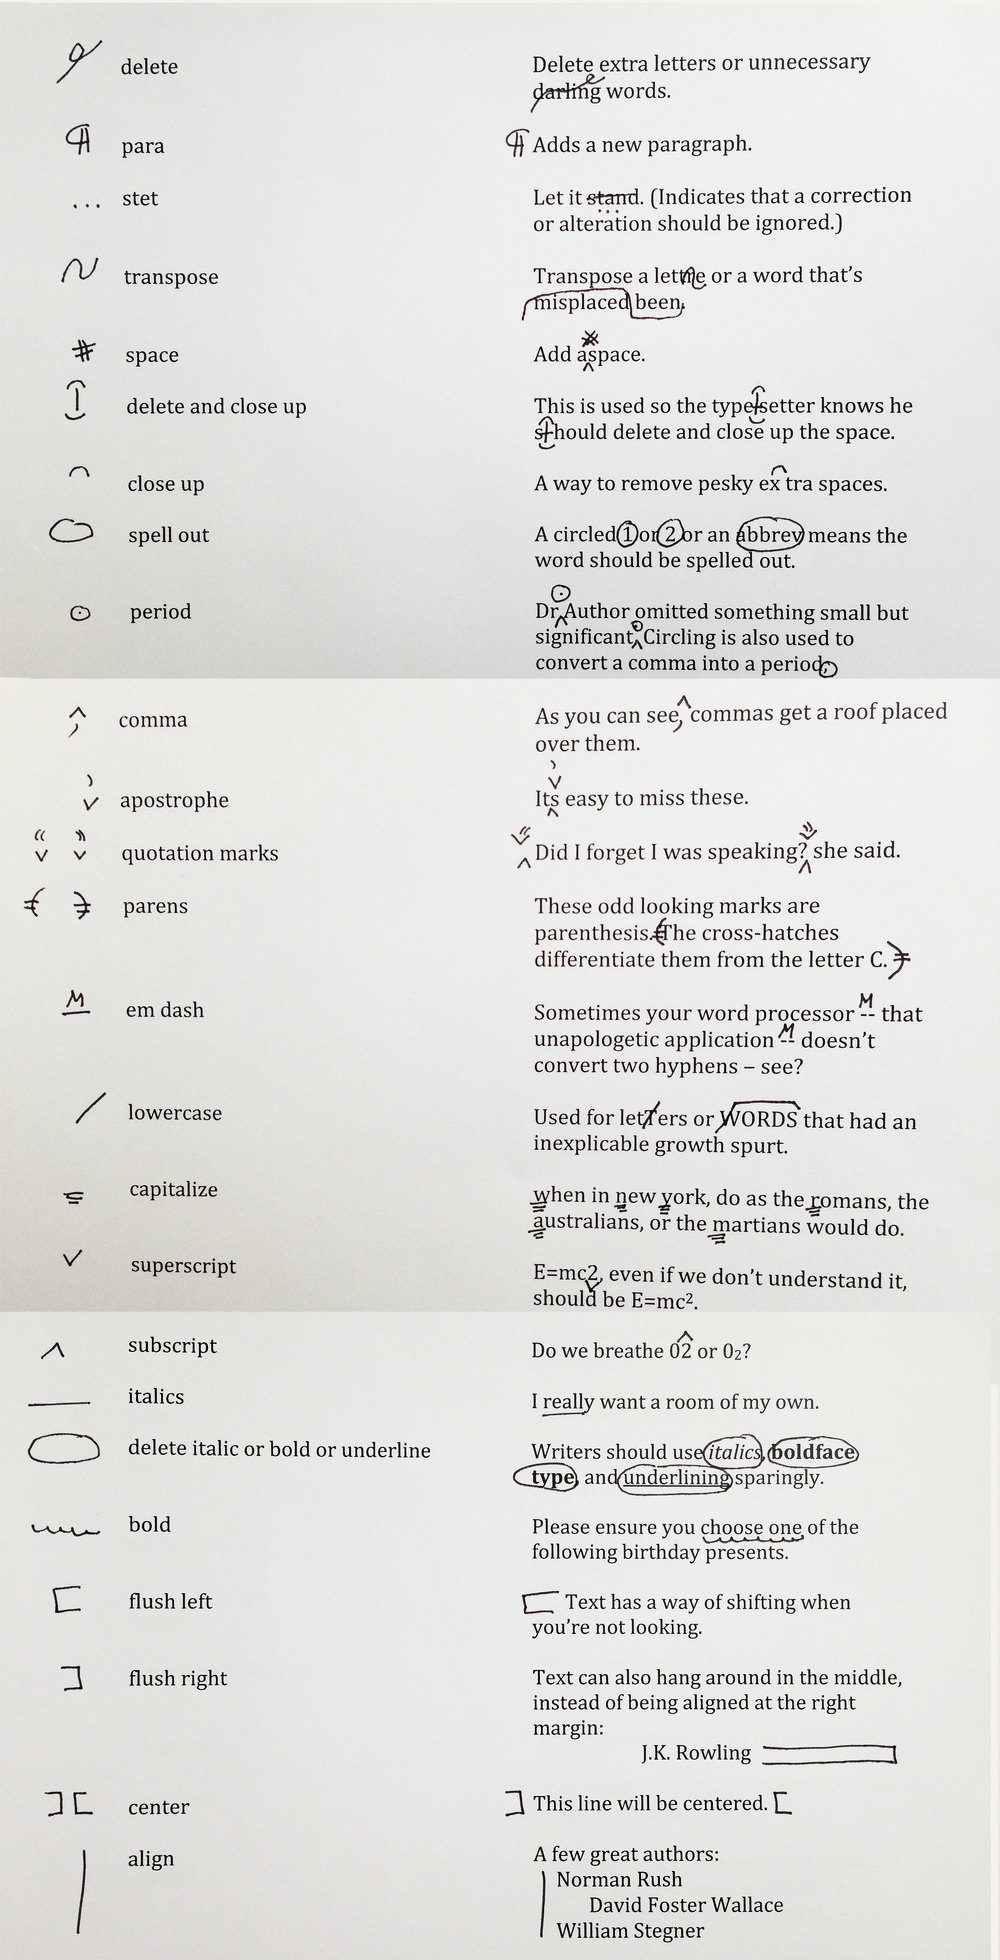 delete
Delete extra letters or unnecessary
darling words.
para
¶ Adds a new paragraph.
... stet
Let it stand. (Indicates that a correction
or alteration should be ignored.)
transpose
Transpose a lettre or a word that’s
misplaced been.
# space
Add aspace. #
delete and close up
This is used so the type-setter knows he
sthould delete and close up the space.
close up
A way to remove pesky ex tra spaces.
spell out
A circled 1 or 2 or an abbrev means the
word should be spelled out.
period
Dr Author omitted something small but
significant Circling is also used to
convert a comma into a period,
comma
As you can see, commas get a roof placed
over them.
apostrophe
Its easy to miss these.
quotation marks
Did I forget I was speaking? she said.
parens
These odd looking marks are
parenthesis. (The cross-hatches
differentiate them from the letter C.)
M em dash
Sometimes your word processor -- that
unapologetic application -- doesn’t
convert two hyphens – see?
lowercase
Used for letTers or WORDS that had an
inexplicable growth spurt.
capitalize
when in new york, do as the romans, the
australians, or the martians would do.
superscript
E=mc2, even if we don’t understand it,
should be E=mc².
subscript
Do we breathe 02 or 0₂?
italics
I really want a room of my own.
delete italic or bold or underline
Writers should use italics, boldface
type, and underlining sparingly.
bold
Please ensure you choose one of the
following birthday presents.
flush left
[ Text has a way of shifting when
you’re not looking.
flush right
Text can also hang around in the middle,
instead of being aligned at the right
margin:
J.K. Rowling ]
] [ center
] This line will be centered. [
align
A few great authors:
Norman Rush
David Foster Wallace
William Stegner